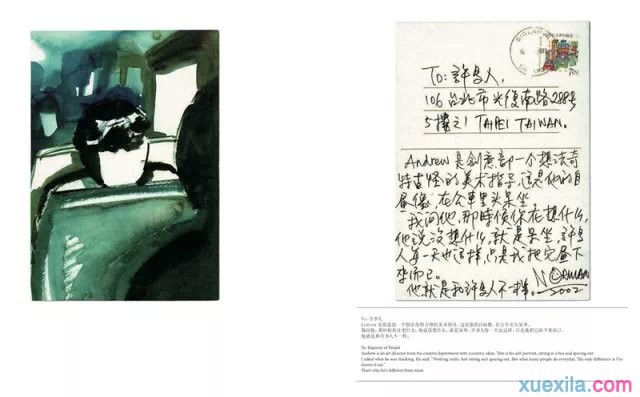 SINGAPORE
To: 許多人,
106 台北市光復南路288号
5樓之1 TAIPEI TAIWAN.
Andrew是創意部一个想法奇
特古怪的美术指导,這是他的自
畫像,在公車里头呆坐.
我问他,那時候你在想什么,
他説没想什么,就是呆坐,許多
人每一天也這样,只是我把它畫下
來而已.
他就是和許多人不一样。 NORMAN
2002
To: 许多人
To: Majority of People
Andrew is an art director from the creative department with eccentric ideas. This is his self-portrait, sitting in a bus and spacing out.
I asked what he was thinking. He said, "Nothing really, just sitting and spacing out, like what many people do everyday. The only difference is I've
drawn it out."
That's why he's different from most.
xuexila.com